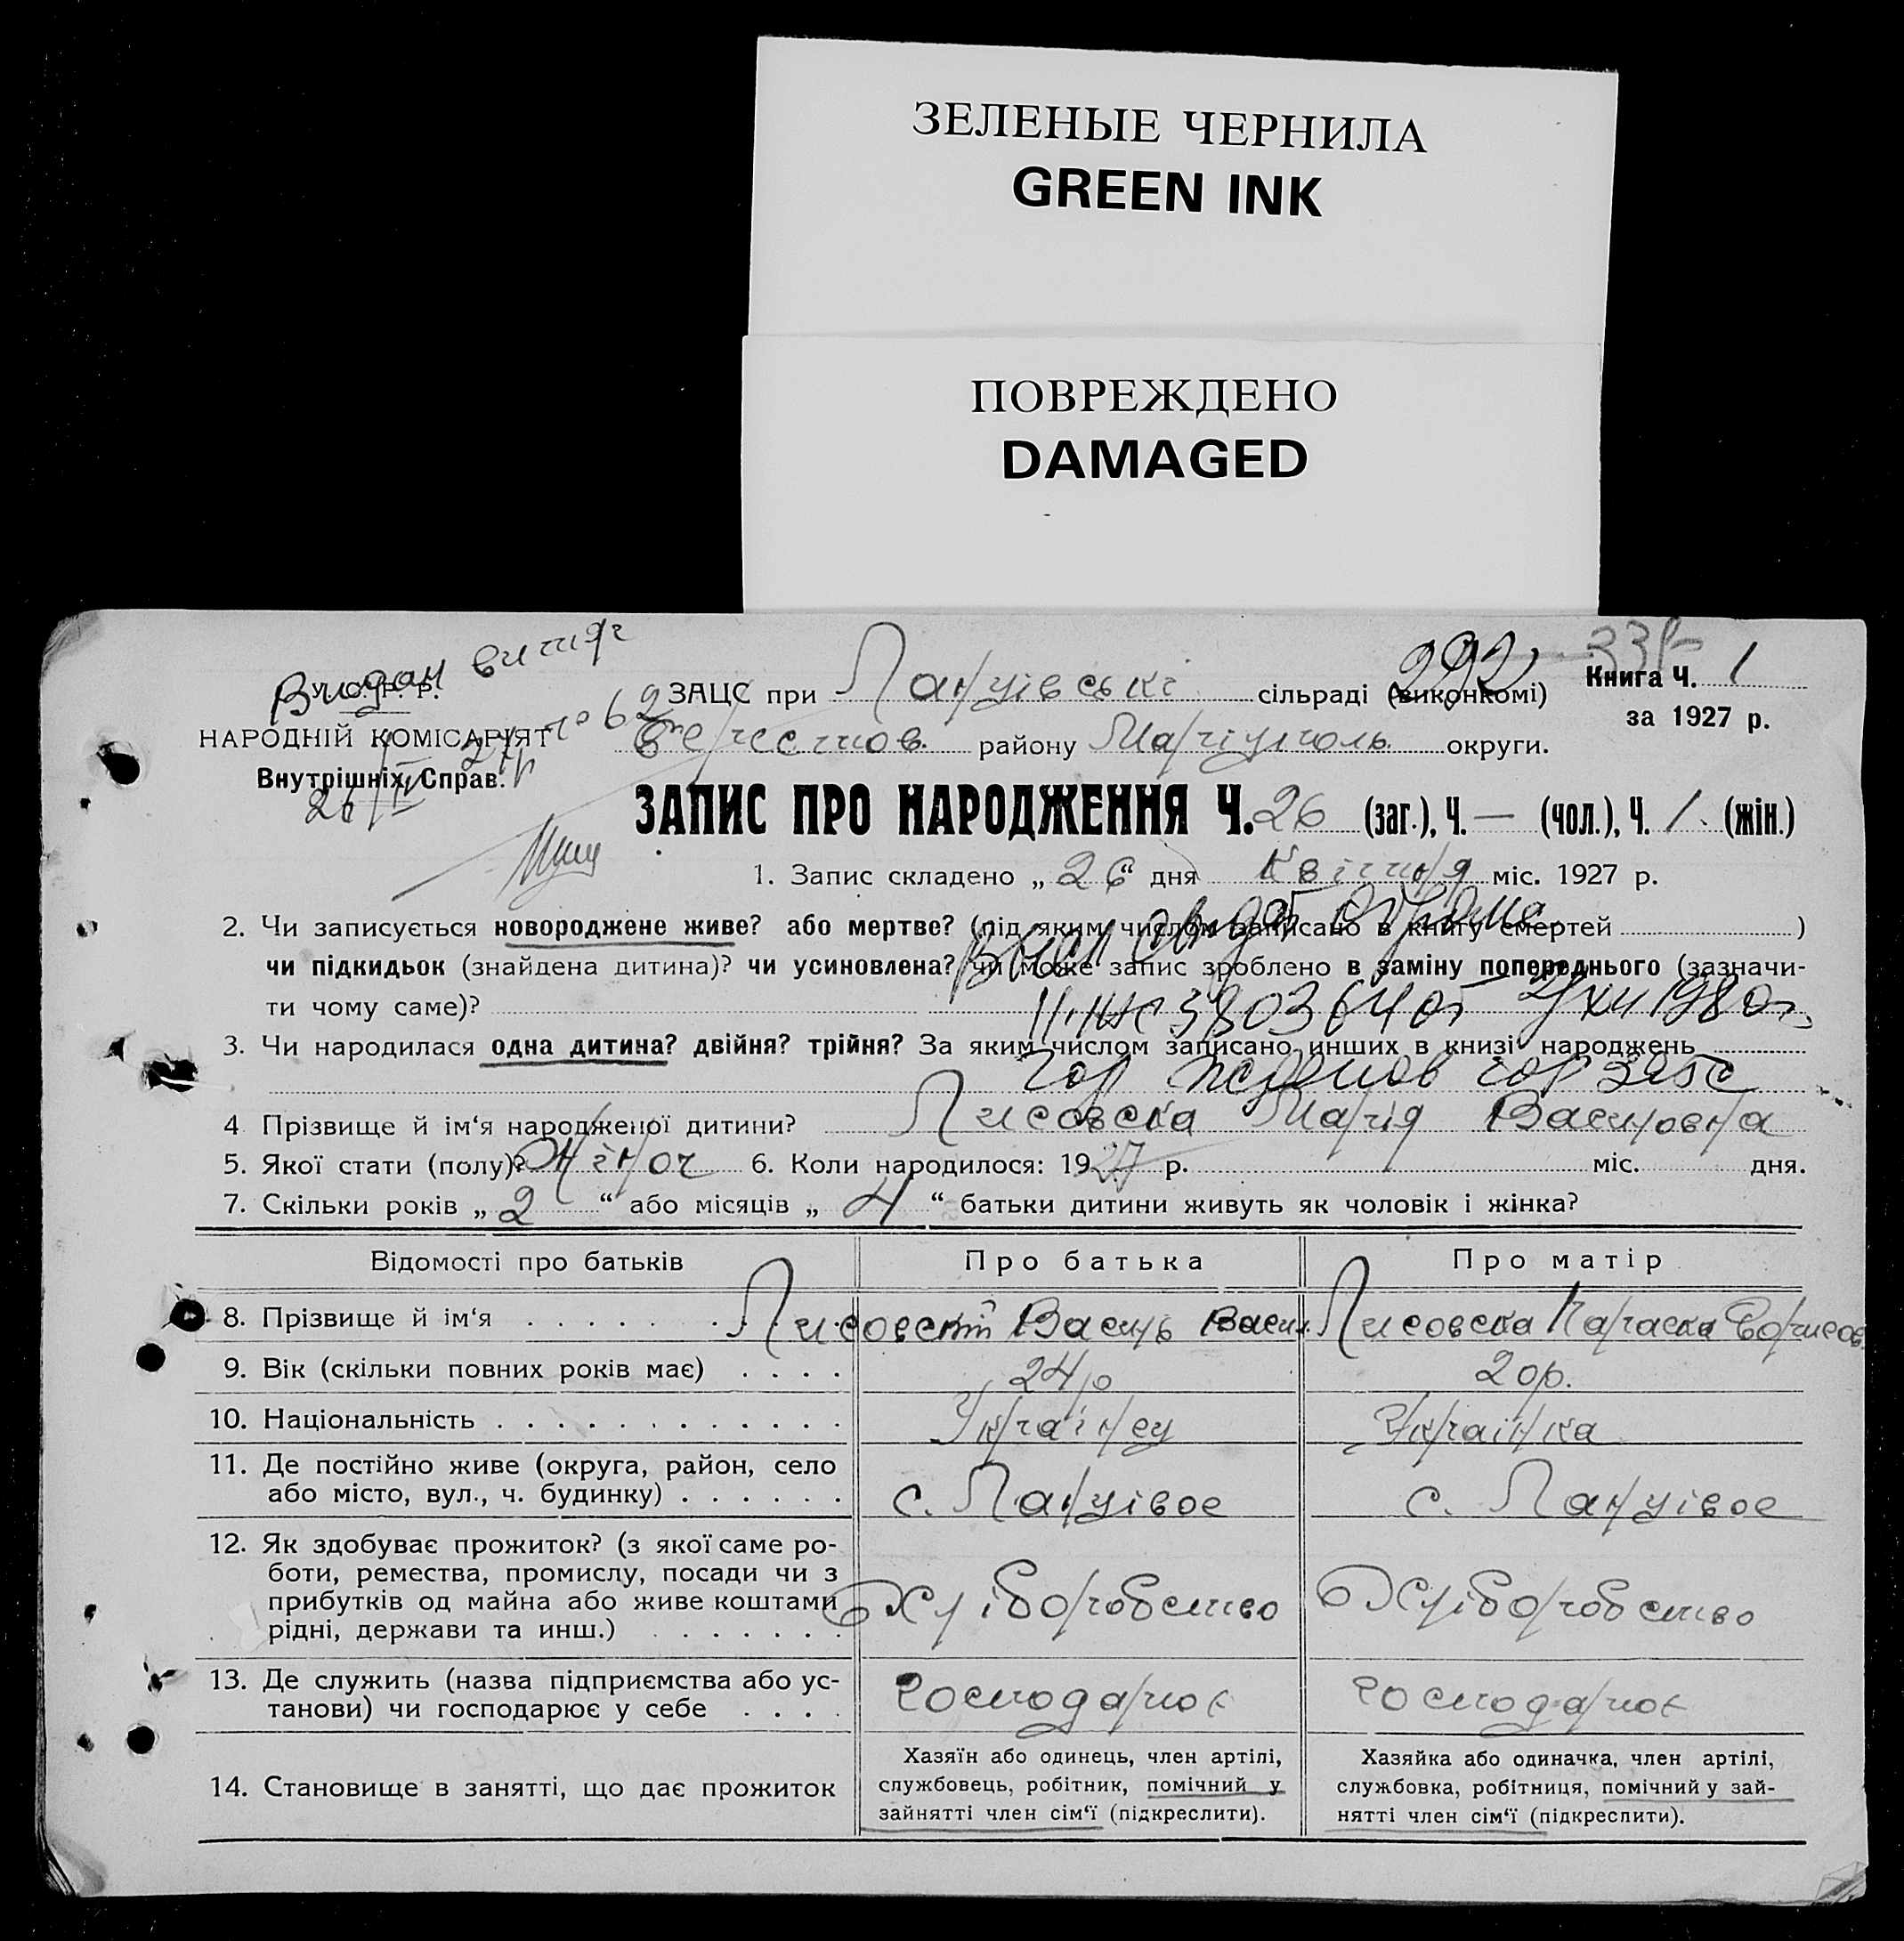 ЗЕЛЕНЫЕ ЧЕРНИЛА
GREEN INK
ПОВРЕЖДЕНО
DAMAGED
Видан витяг
№ 62
У. С. Р. Р.
НАРОДНІЙ КОМІСАРІЯТ
Внутрішніх Справ.
26/IV 27р
292
331
Книга Ч. 1
за 1927 р.
ЗАЦС при Ланцівські сільраді (виконкомі)
Берестов. району Маріуполь округи.
ЗАПИС ПРО НАРОДЖЕННЯ Ч. 26 (заг.), Ч. — (чол.), Ч. 1. (жін.)
1. Запис складено „ 26 “ дня Квітня міс. 1927 р.
2. Чи записується новороджене живе? або мертве? (під яким числом записано в книгу смертей )
чи підкидьок (знайдена дитина)? чи усиновлена? чи може запис зроблено в заміну попереднього (зазначи-
ти чому саме)?
380364 от XII 1980г.
3. Чи народилася одна дитина? двійня? трійня? За яким числом записано инших в книзі народжень
гор Жданов горзагс
4 Прізвище й ім‘я народженої дитини? Лисовска Марія Васильовна
5. Якої стати (полу)? Жіноч 6. Коли народилося: 1927 р. міс. дня.
7. Скільки років „ 2 “ або місяців „ 4 “ батьки дитини живуть як чоловік і жінка?
Відомості про батьків Про батька Про матір
8. Прізвище й ім‘я Лисовский Василь Васил. Лисовска Параска Борисов.
9. Вік (скільки повних років має) 24р 20р.
10. Національність Українец Українка
11. Де постійно живе (округа, район, село
або місто, вул., ч. будинку) с. Ланцівое с. Ланцівое
12. Як здобуває прожиток? (з якої саме ро-
боти, ремества, промислу, посади чи з
прибутків од майна або живе коштами
рідні, держави та инш.) Хліборобство Хліборобство
13. Де служить (назва підприємства або ус-
танови) чи господарює у себе Господарює Господарює
14. Становище в занятті, що дає прожиток
Хазяїн або одинець, член артілі,
службовець, робітник, помічний у
зайнятті член сім‘ї (підкреслити).
Хазяйка або одиначка, член артілі,
службовка, робітниця, помічний у зай-
нятті член сім‘ї (підкреслити).